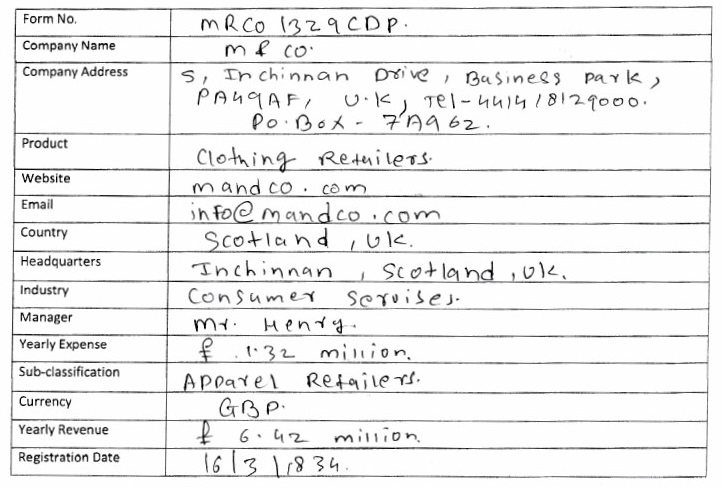 Form No. MRCO 1329CDP.
Company Name M & CO.
Company Address 5, Inchinnan Drive, Business Park,
PA49AF, U.K, Tel-441418129000.
PO.Box - 7A962.
Product Clothing Retailers.
Website mandco.com
Email info@mandco.com
Country Scotland, UK.
Headquarters Inchinnan, Scotland, UK.
Industry Consumer Servises.
Manager Mr. Henry.
Yearly Expense £ 1.32 million.
Sub-classification Apparel Retailers.
Currency GBP.
Yearly Revenue £ 6.42 million.
Registration Date 16/3/1834.